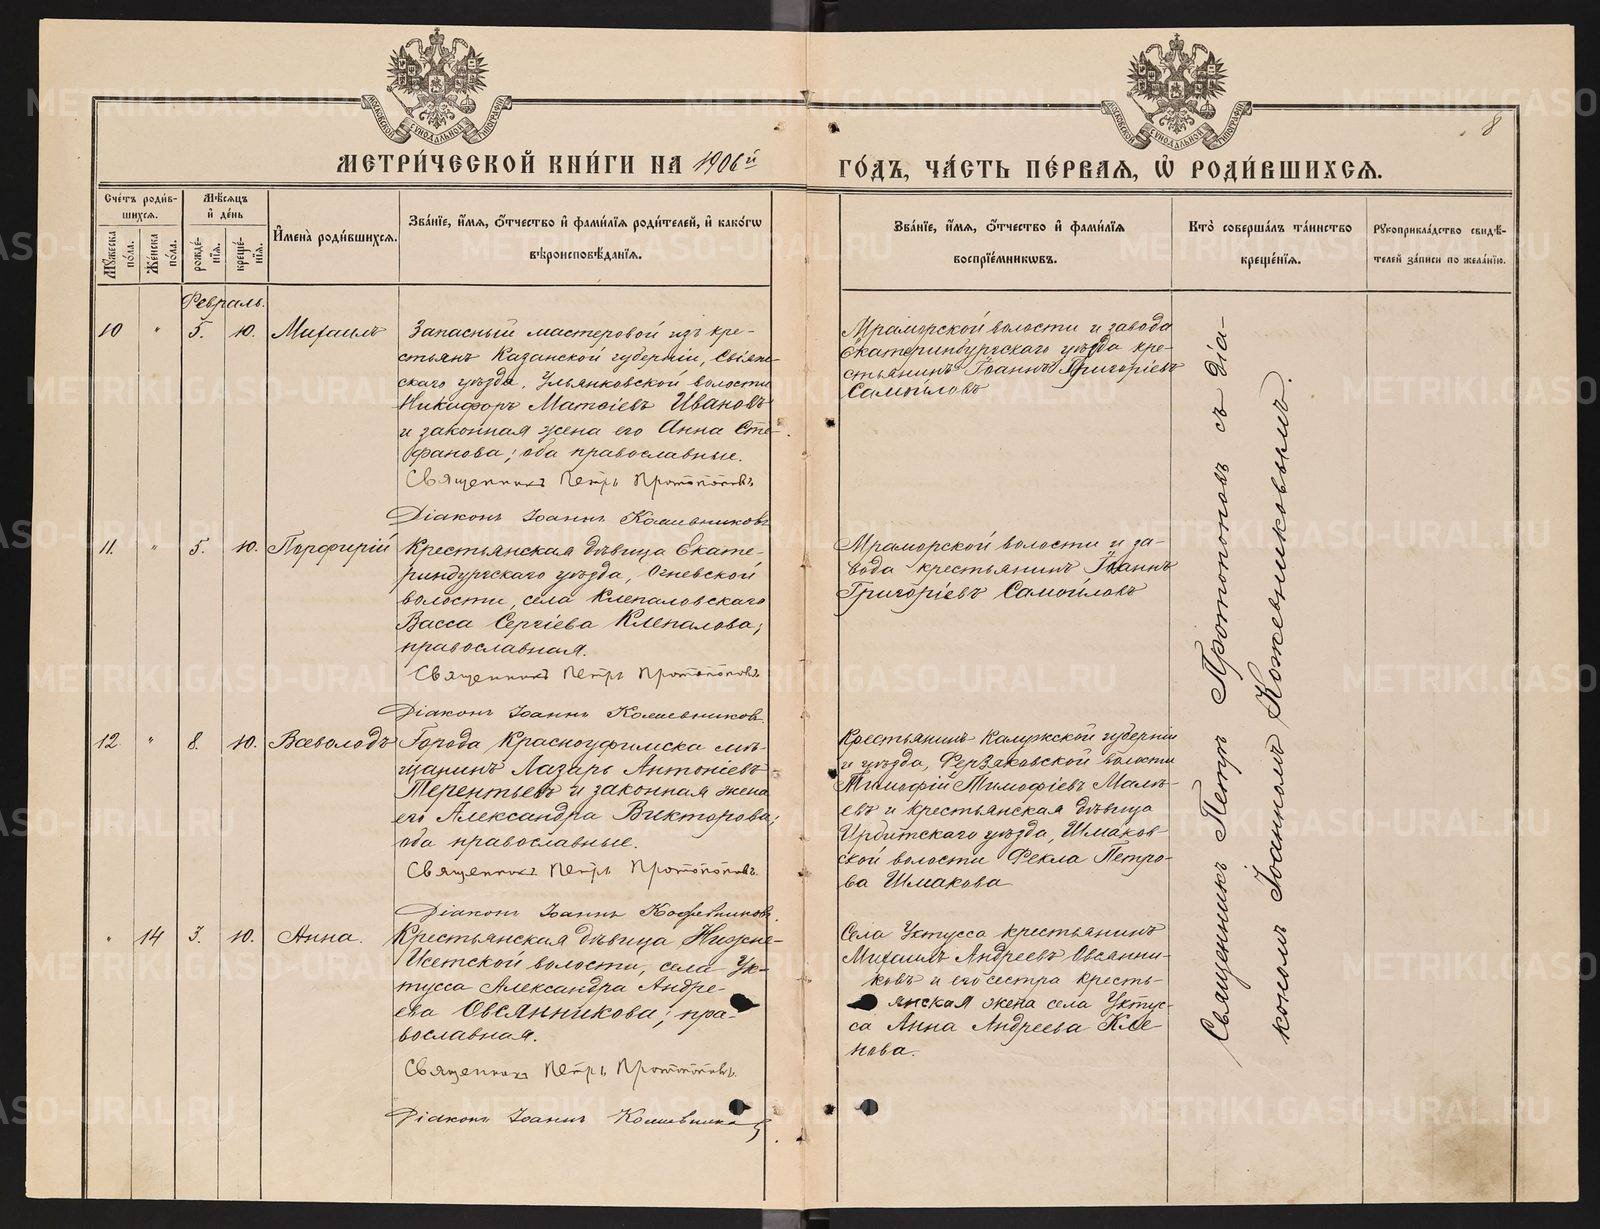 8
МЕТРИ́ЧЕСКОЙ КНИ́ГИ НА 1906й ГО́ДЪ, ЧА́СТЬ ПЕ́РВАЯ, Ѿ РОДИ́ВШИХСЯ.
Сче́тъ роди́в-
шихся.
Мужеска
по́ла.
Женска
по́ла.
Мѣсяцъ
и де́нь
рожде́-
нїя.
креще́-
нїя.
Имена̀ роди́вшихся.
Зва́нїе, и́мя, о́тчество и фами́лїя роди́телей, и како́гѡ
вѣроисповѣ́данїя.
Зва́нїе, и́мя, о́тчество и фами́лїя
воспрїе́мникѡвъ.
Кто̀ соверша́лъ та́инство
креще́нїя.
Рукоприкла́дство свидѣ́-
телей за́писи по жела́нїю.
Февраль.
10 " 5. 10. Михаилъ
Запасный мастеровой изъ кре-
стьянъ Казанской губерніи, Свіяж-
скаго уѣзда, Ульянковской волости
Никифоръ Матѳіевъ Ивановъ
и законная жена его Анна Сте-
фанова; оба православные.
Священникъ Петръ Протопоповъ
Діаконъ Іоаннъ Кожевниковъ
Мраморской волости и завода
Екатеринбургскаго уѣзда кре-
стьянинъ Іоаннъ Григоріевъ
Самойловъ
11. " 5. 10. Порфирій
Крестьянская дѣвица Екате-
ринбургскаго уѣзда, Огневской
волости, села Клепаловскаго
Васса Сергіева Клепалова;
православная.
Священникъ Петръ Протопоповъ
Діаконъ Іоаннъ Кожевниковъ
Мраморской волости и за-
вода крестьянинъ Іоаннъ
Григоріевъ Самойловъ
12. " 8. 10. Всеволодъ
Города Красноуфимска мѣ-
щанинъ Лазарь Антоніевъ
Терентьевъ и законная жена
его Александра Викторова;
оба православные.
Священникъ Петръ Протопоповъ
Діаконъ Іоаннъ Кожевниковъ.
Крестьянинъ Калужской губерніи
и уѣзда, волости
Тимофій Тимофіевъ Малѣ-
евъ и крестьянская дѣвица
Ирбитскаго уѣзда, Шмаков-
ской волости Фекла Петро-
ва Шмакова
" 14 3. 10. Анна.
Крестьянская дѣвица Нижне-
Исетской волости, села Ук-
тусса Александра Андре-
ева Овсянникова; пра-
вославная.
Священникъ Петръ Протопоповъ.
Діаконъ Іоаннъ Кожевниковъ
Села Уктусса крестьянинъ
Михаилъ Андреевъ Овсянни-
ковъ и его сестра кресть-
янская жена села Уктус-
са Анна Андреева
нова.
Священникъ Петръ Протопоповъ съ діа-
кономъ Іоанномъ Кожевниковымъ.
METRIKI.GASO-URAL.RU